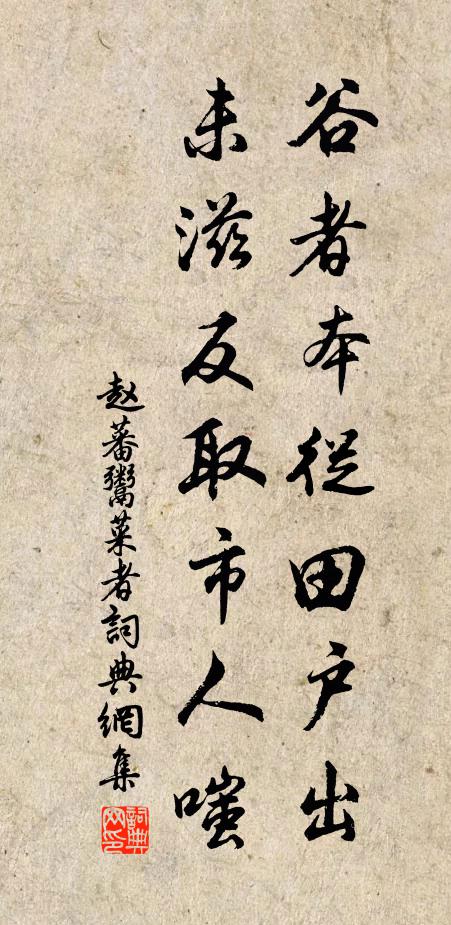 谷者本從田户出
未滋反取市人嗤
赵蕃鬻菜者詞典網集
詞典網印